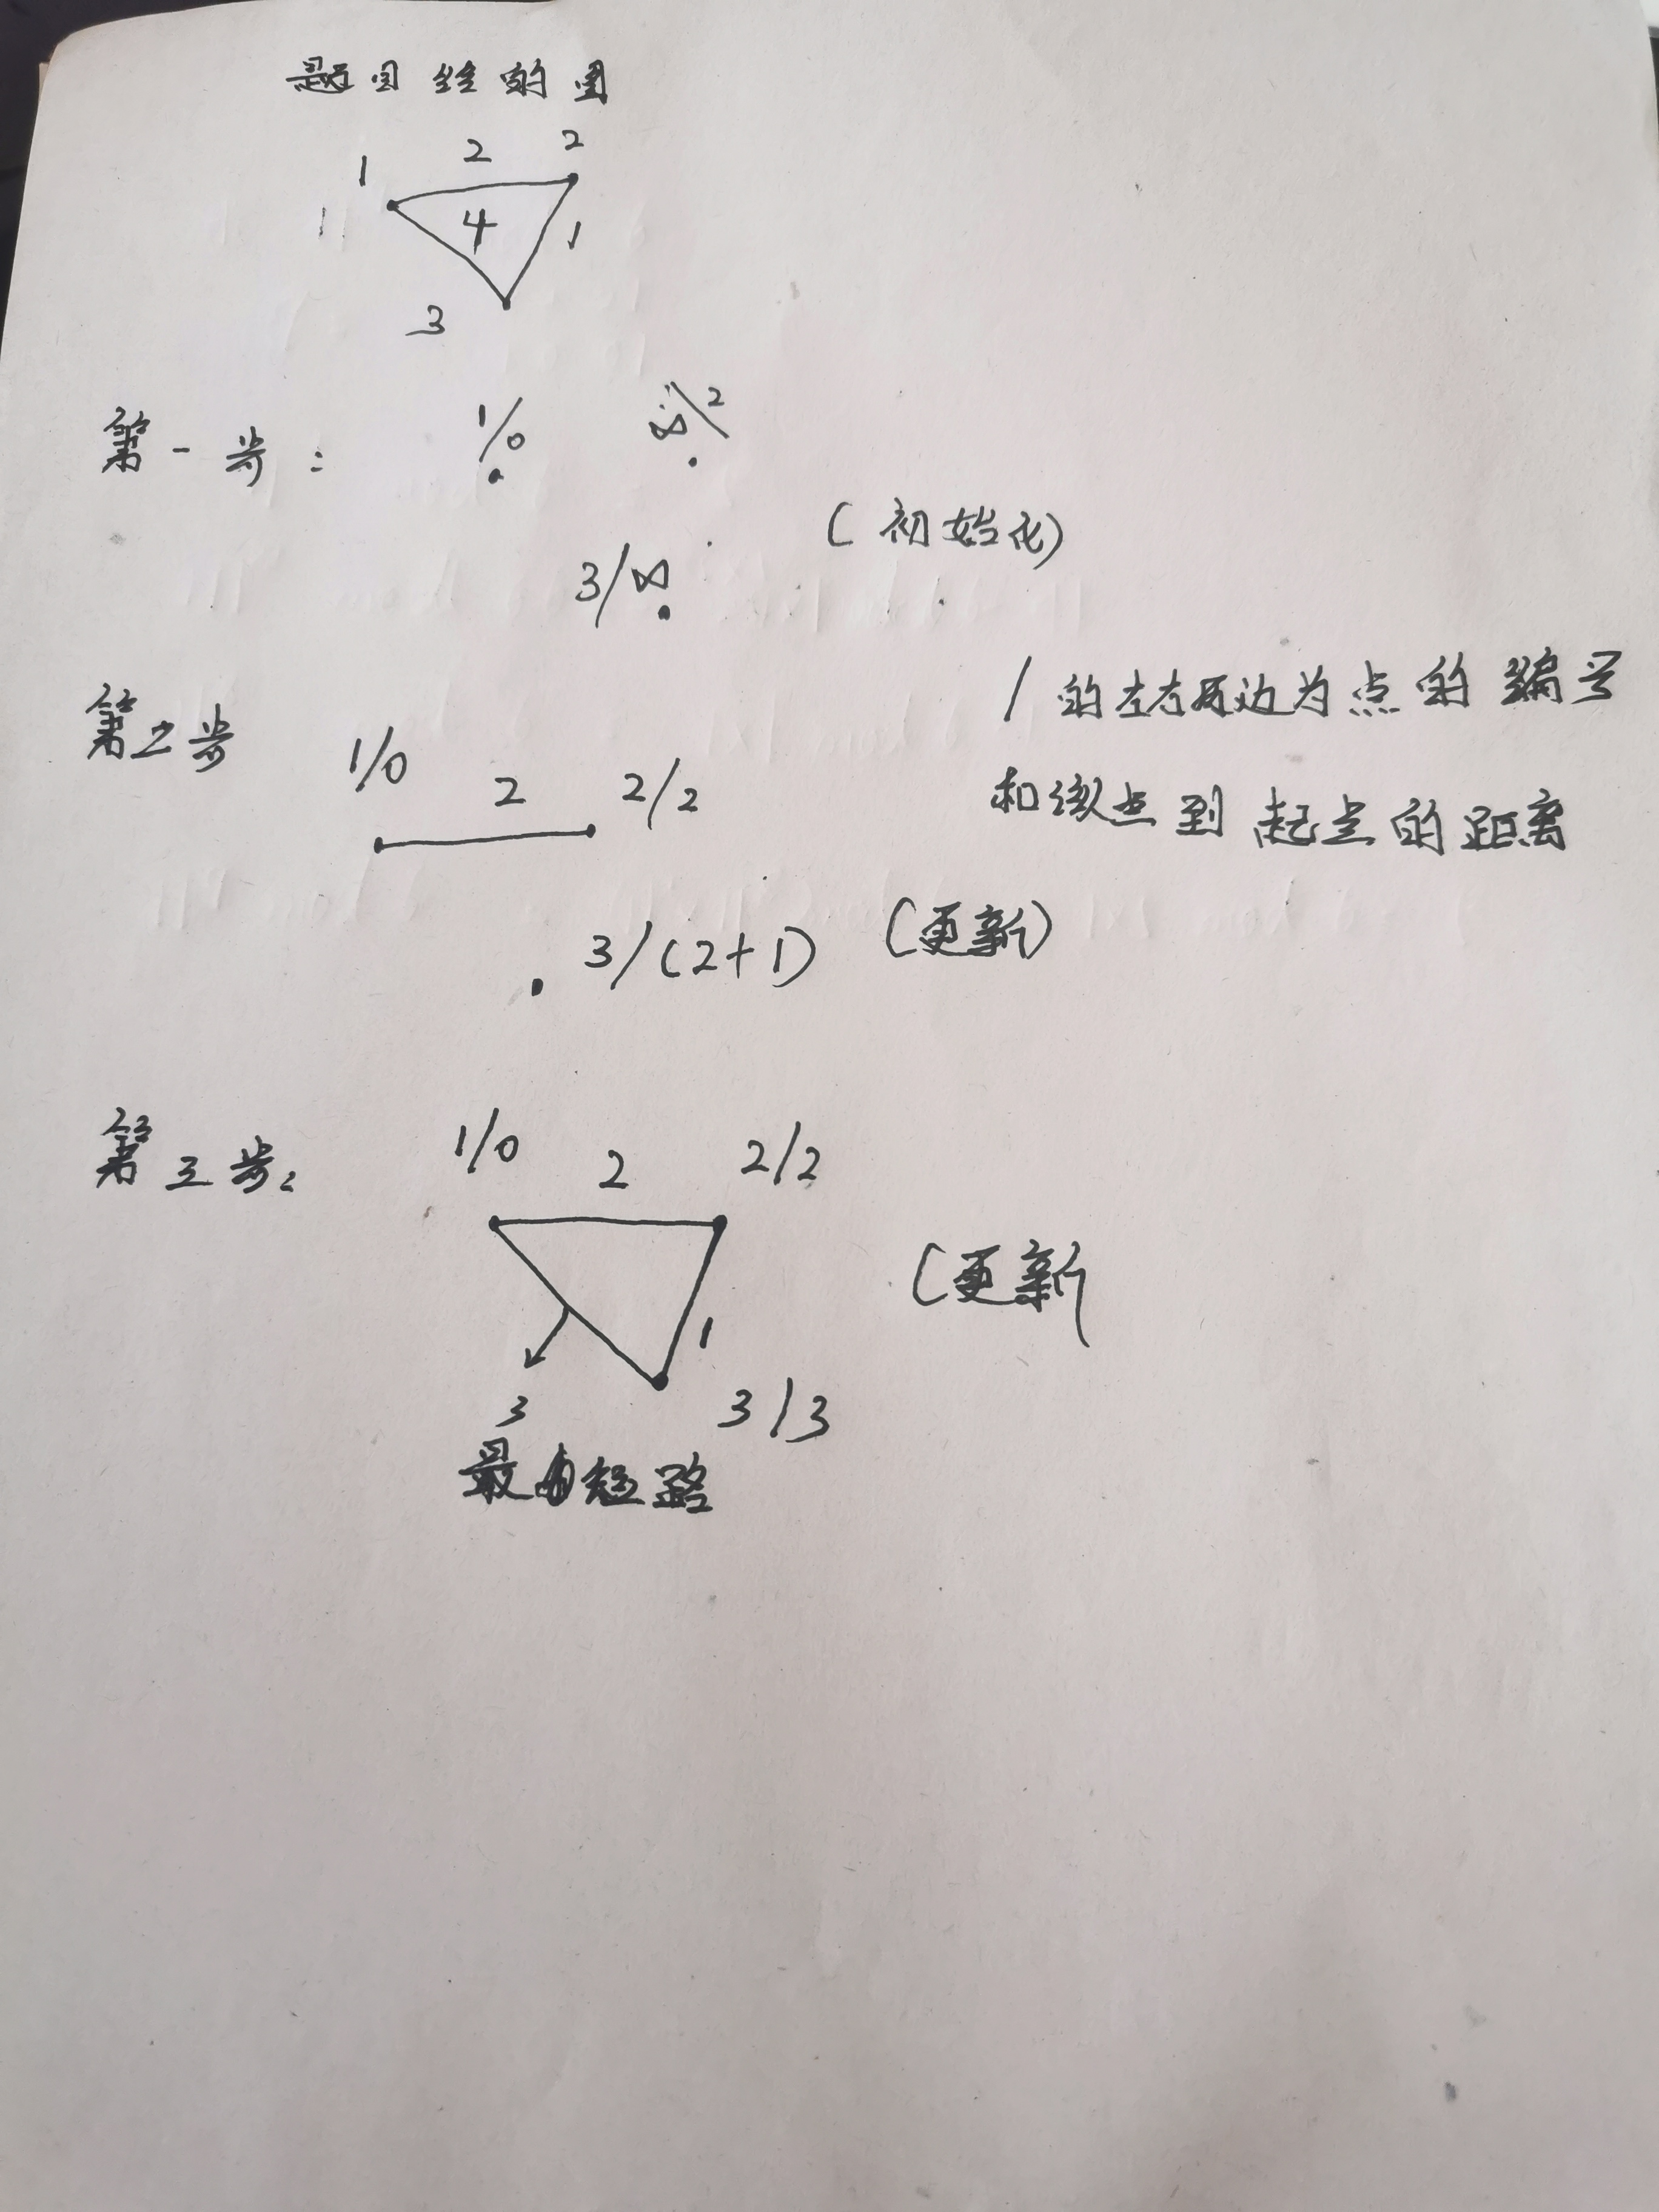 题目给的图
1 2 2
1 4 1
3
第一步: 1/0 ∞/2
(初始化)
3/∞
/的左右两边为点的编号
第二步 1/0 2 2/2
和该点到起点的距离
3/(2+1) (更新)
第三步: 1/0 2 2/2
(更新
1
3 3/3
最短路